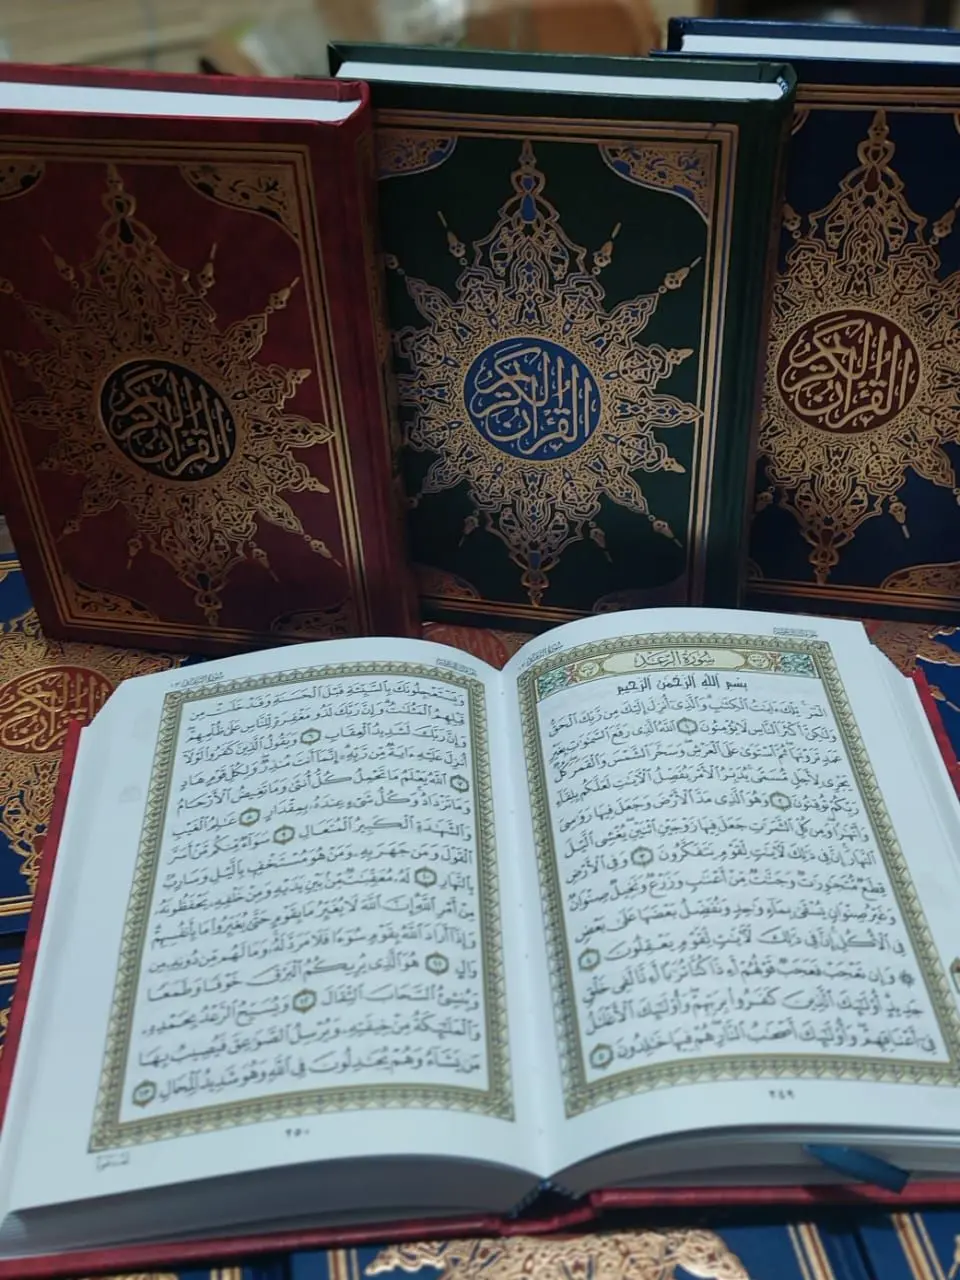 القرآن الكريم
القرآن الكريم
القرآن الكريم
سُورَةُ الرَّعْدِ
بِسْمِ اللَّهِ الرَّحْمَٰنِ الرَّحِيمِ
الٓمٓر ۚ تِلْكَ ءَايَٰتُ ٱلْكِتَٰبِ ۗ وَٱلَّذِىٓ أُنزِلَ إِلَيْكَ مِن رَّبِّكَ ٱلْحَقُّ
وَلَٰكِنَّ أَكْثَرَ ٱلنَّاسِ لَا يُؤْمِنُونَ ١ ٱللَّهُ ٱلَّذِى رَفَعَ ٱلسَّمَٰوَٰتِ بِغَيْرِ
عَمَدٍ تَرَوْنَهَا ۖ ثُمَّ ٱسْتَوَىٰ عَلَى ٱلْعَرْشِ ۖ وَسَخَّرَ ٱلشَّمْسَ وَٱلْقَمَرَ ۖ كُلٌّ
يَجْرِى لِأَجَلٍ مُّسَمًّى ۚ يُدَبِّرُ ٱلْأَمْرَ يُفَصِّلُ ٱلْءَايَٰتِ لَعَلَّكُم بِلِقَآءِ
رَبِّكُمْ تُوقِنُونَ ٢ وَهُوَ ٱلَّذِى مَدَّ ٱلْأَرْضَ وَجَعَلَ فِيهَا رَوَٰسِىَ
وَأَنْهَٰرًا ۖ وَمِن كُلِّ ٱلثَّمَرَٰتِ جَعَلَ فِيهَا زَوْجَيْنِ ٱثْنَيْنِ ۖ يُغْشِى ٱلَّيْلَ
ٱلنَّهَارَ ۚ إِنَّ فِى ذَٰلِكَ لَءَايَٰتٍ لِّقَوْمٍ يَتَفَكَّرُونَ ٣ وَفِى ٱلْأَرْضِ
قِطَعٌ مُّتَجَٰوِرَٰتٌ وَجَنَّٰتٌ مِّنْ أَعْنَٰبٍ وَزَرْعٌ وَنَخِيلٌ صِنْوَانٌ
وَغَيْرُ صِنْوَانٍ يُسْقَىٰ بِمَآءٍ وَٰحِدٍ وَنُفَضِّلُ بَعْضَهَا عَلَىٰ بَعْضٍ
فِى ٱلْأُكُلِ ۚ إِنَّ فِى ذَٰلِكَ لَءَايَٰتٍ لِّقَوْمٍ يَعْقِلُونَ ٤
۞ وَإِن تَعْجَبْ فَعَجَبٌ قَوْلُهُمْ أَءِذَا كُنَّا تُرَٰبًا أَءِنَّا لَفِى خَلْقٍ
جَدِيدٍ ۗ أُو۟لَٰٓئِكَ ٱلَّذِينَ كَفَرُوا۟ بِرَبِّهِمْ ۖ وَأُو۟لَٰٓئِكَ ٱلْأَغْلَٰلُ
فِىٓ أَعْنَاقِهِمْ ۖ وَأُو۟لَٰٓئِكَ أَصْحَٰبُ ٱلنَّارِ ۖ هُمْ فِيهَا خَٰلِدُونَ ٥
٢٤٩
وَيَسْتَعْجِلُونَكَ بِٱلسَّيِّئَةِ قَبْلَ ٱلْحَسَنَةِ وَقَدْ خَلَتْ مِن
قَبْلِهِمُ ٱلْمَثُلَٰتُ ۗ وَإِنَّ رَبَّكَ لَذُو مَغْفِرَةٍ لِّلنَّاسِ عَلَىٰ ظُلْمِهِمْ ۖ
وَإِنَّ رَبَّكَ لَشَدِيدُ ٱلْعِقَابِ ٦ وَيَقُولُ ٱلَّذِينَ كَفَرُوا۟ لَوْلَآ
أُنزِلَ عَلَيْهِ ءَايَةٌ مِّن رَّبِّهِۦٓ ۗ إِنَّمَآ أَنتَ مُنذِرٌ ۖ وَلِكُلِّ قَوْمٍ هَادٍ
٧ ٱللَّهُ يَعْلَمُ مَا تَحْمِلُ كُلُّ أُنثَىٰ وَمَا تَغِيضُ ٱلْأَرْحَامُ
وَمَا تَزْدَادُ ۖ وَكُلُّ شَىْءٍ عِندَهُۥ بِمِقْدَارٍ ٨ عَٰلِمُ ٱلْغَيْبِ
وَٱلشَّهَٰدَةِ ٱلْكَبِيرُ ٱلْمُتَعَالِ ٩ سَوَآءٌ مِّنكُم مَّنْ أَسَرَّ
ٱلْقَوْلَ وَمَن جَهَرَ بِهِۦ وَمَنْ هُوَ مُسْتَخْفٍۭ بِٱلَّيْلِ وَسَارِبٌۢ
بِٱلنَّهَارِ ١٠ لَهُۥ مُعَقِّبَٰتٌ مِّنۢ بَيْنِ يَدَيْهِ وَمِنْ خَلْفِهِۦ يَحْفَظُونَهُۥ
مِنْ أَمْرِ ٱللَّهِ ۗ إِنَّ ٱللَّهَ لَا يُغَيِّرُ مَا بِقَوْمٍ حَتَّىٰ يُغَيِّرُوا۟ مَا بِأَنفُسِهِمْ ۗ
وَإِذَآ أَرَادَ ٱللَّهُ بِقَوْمٍ سُوٓءًا فَلَا مَرَدَّ لَهُۥ ۚ وَمَا لَهُم مِّن دُونِهِۦ مِن
وَالٍ ١١ هُوَ ٱلَّذِى يُرِيكُمُ ٱلْبَرْقَ خَوْفًا وَطَمَعًا
وَيُنشِئُ ٱلسَّحَابَ ٱلثِّقَالَ ١٢ وَيُسَبِّحُ ٱلرَّعْدُ بِحَمْدِهِۦ
وَٱلْمَلَٰٓئِكَةُ مِنْ خِيفَتِهِۦ وَيُرْسِلُ ٱلصَّوَٰعِقَ فَيُصِيبُ بِهَا
مَن يَشَآءُ وَهُمْ يُجَٰدِلُونَ فِى ٱللَّهِ وَهُوَ شَدِيدُ ٱلْمِحَالِ ١٣
٢٥٠